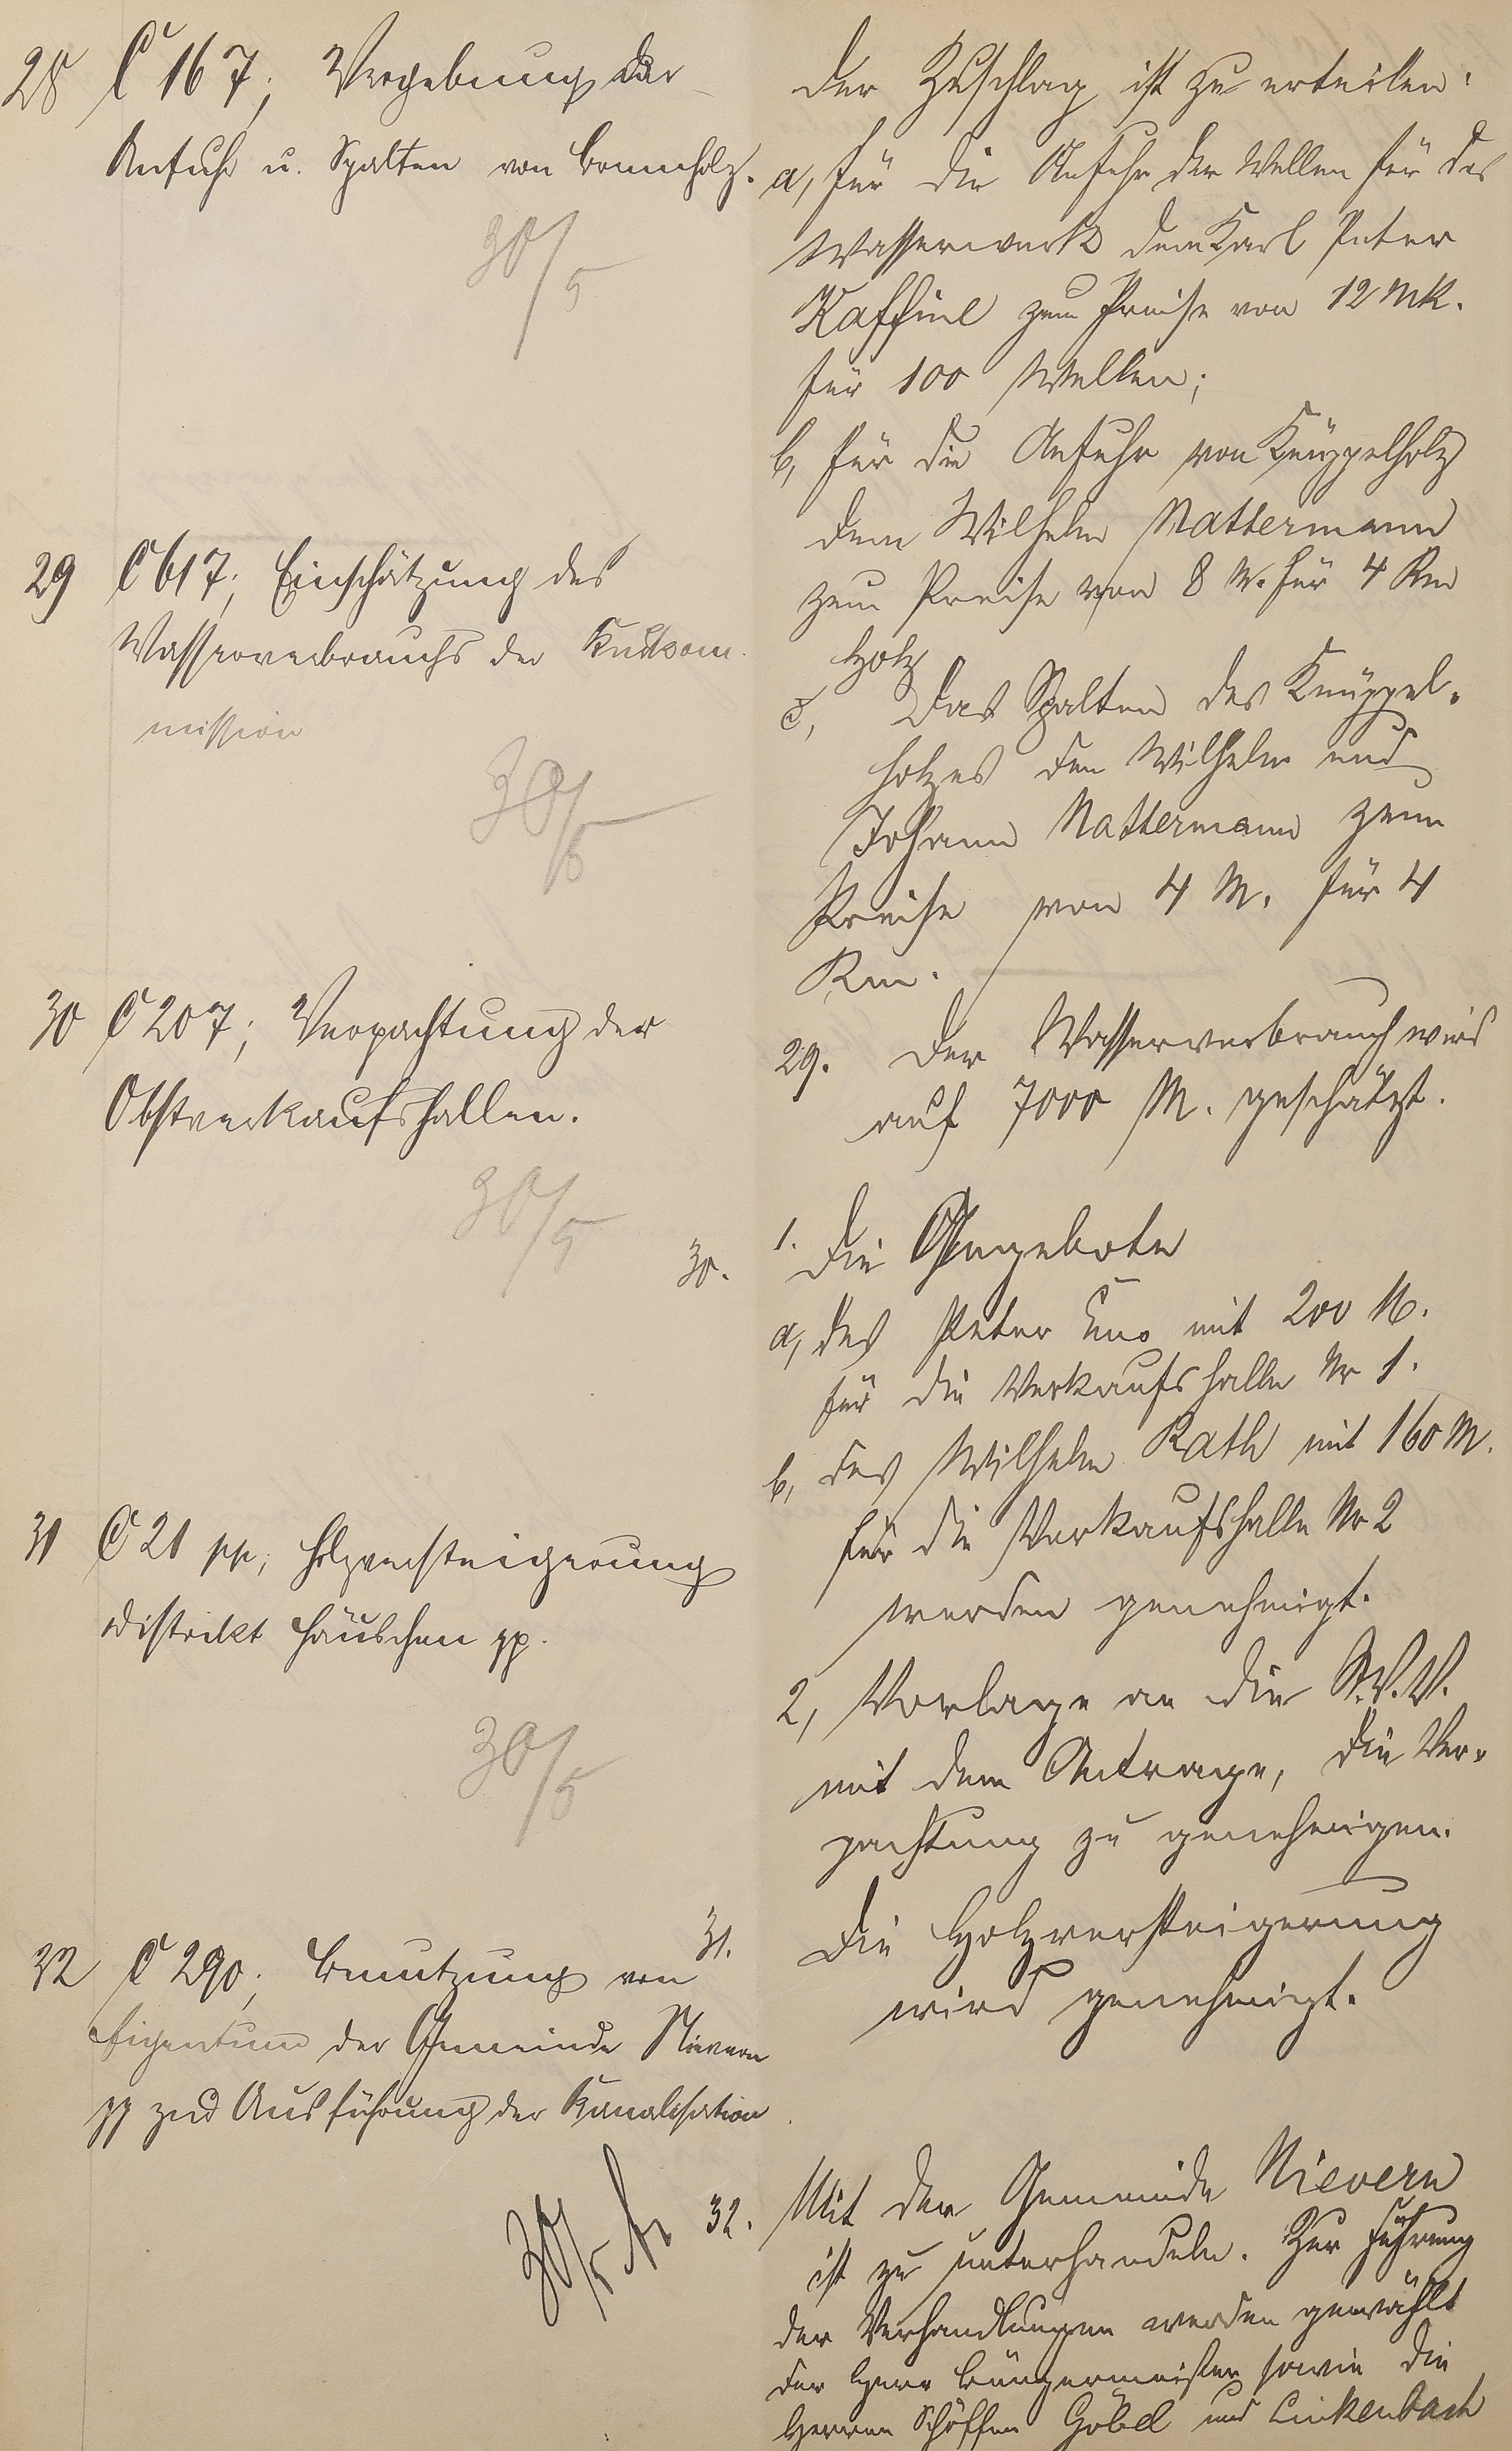 28 C 167; Vergebung der
Anfuhr u. Spalten von Brennholz.
30/5
29 C 617; Einschätzung des
Wasserverbrauchs der Kurkom-
mission
30/5
30 C 207; Verpachtung der
Obstverkaufshallen.
30/5
31 C 21 pp; Holzversteigerung
Distrikt Häuschen pp.
30/5
32 C 290; Benutzung von
Eigentum der Gemeinde Nievern
pp zur Ausführung der Kanalisation
30/5
Der Zuschlag ist zu erteilen:
a, für die Anfuhr der Wellen für das
Wasserwerk dem Karl Peter
Kaffine zum Preise von 12 Mk.
für 100 Wellen;
b, für die Anfuhr von Knüppelholz
dem Wilhelm Nattermann
zum Preise von 8 M. für 4 Rm
Holz
c, Das Spalten des Knüppel-
holzes den Wilhelm und
Johann Nattermann zum
Preise von 4 M. für 4
Rm.
29. Der Wasserverbrauch wird
auf 7000 M. geschätzt.
30. 1. Die Angebote
a, des Peter mit 200 M.
für die Verkaufshalle Nr 1.
b, des Wilhelm Rath mit 160 M.
für die Verkaufshalle Nr 2
werden genehmigt.
2, Vorlage an die St.V.V.
mit dem Antrage, die Ver-
pachtung zu genehmigen.
31. Die Holzversteigerung
wird genehmigt.
32. Mit der Gemeinde Nievern
ist zu unterhandeln. Zur Führung
der Verhandlungen werden gewählt
der Herr Bürgermeister sowie die
Herren Schöffen Göbel und Linkenbach